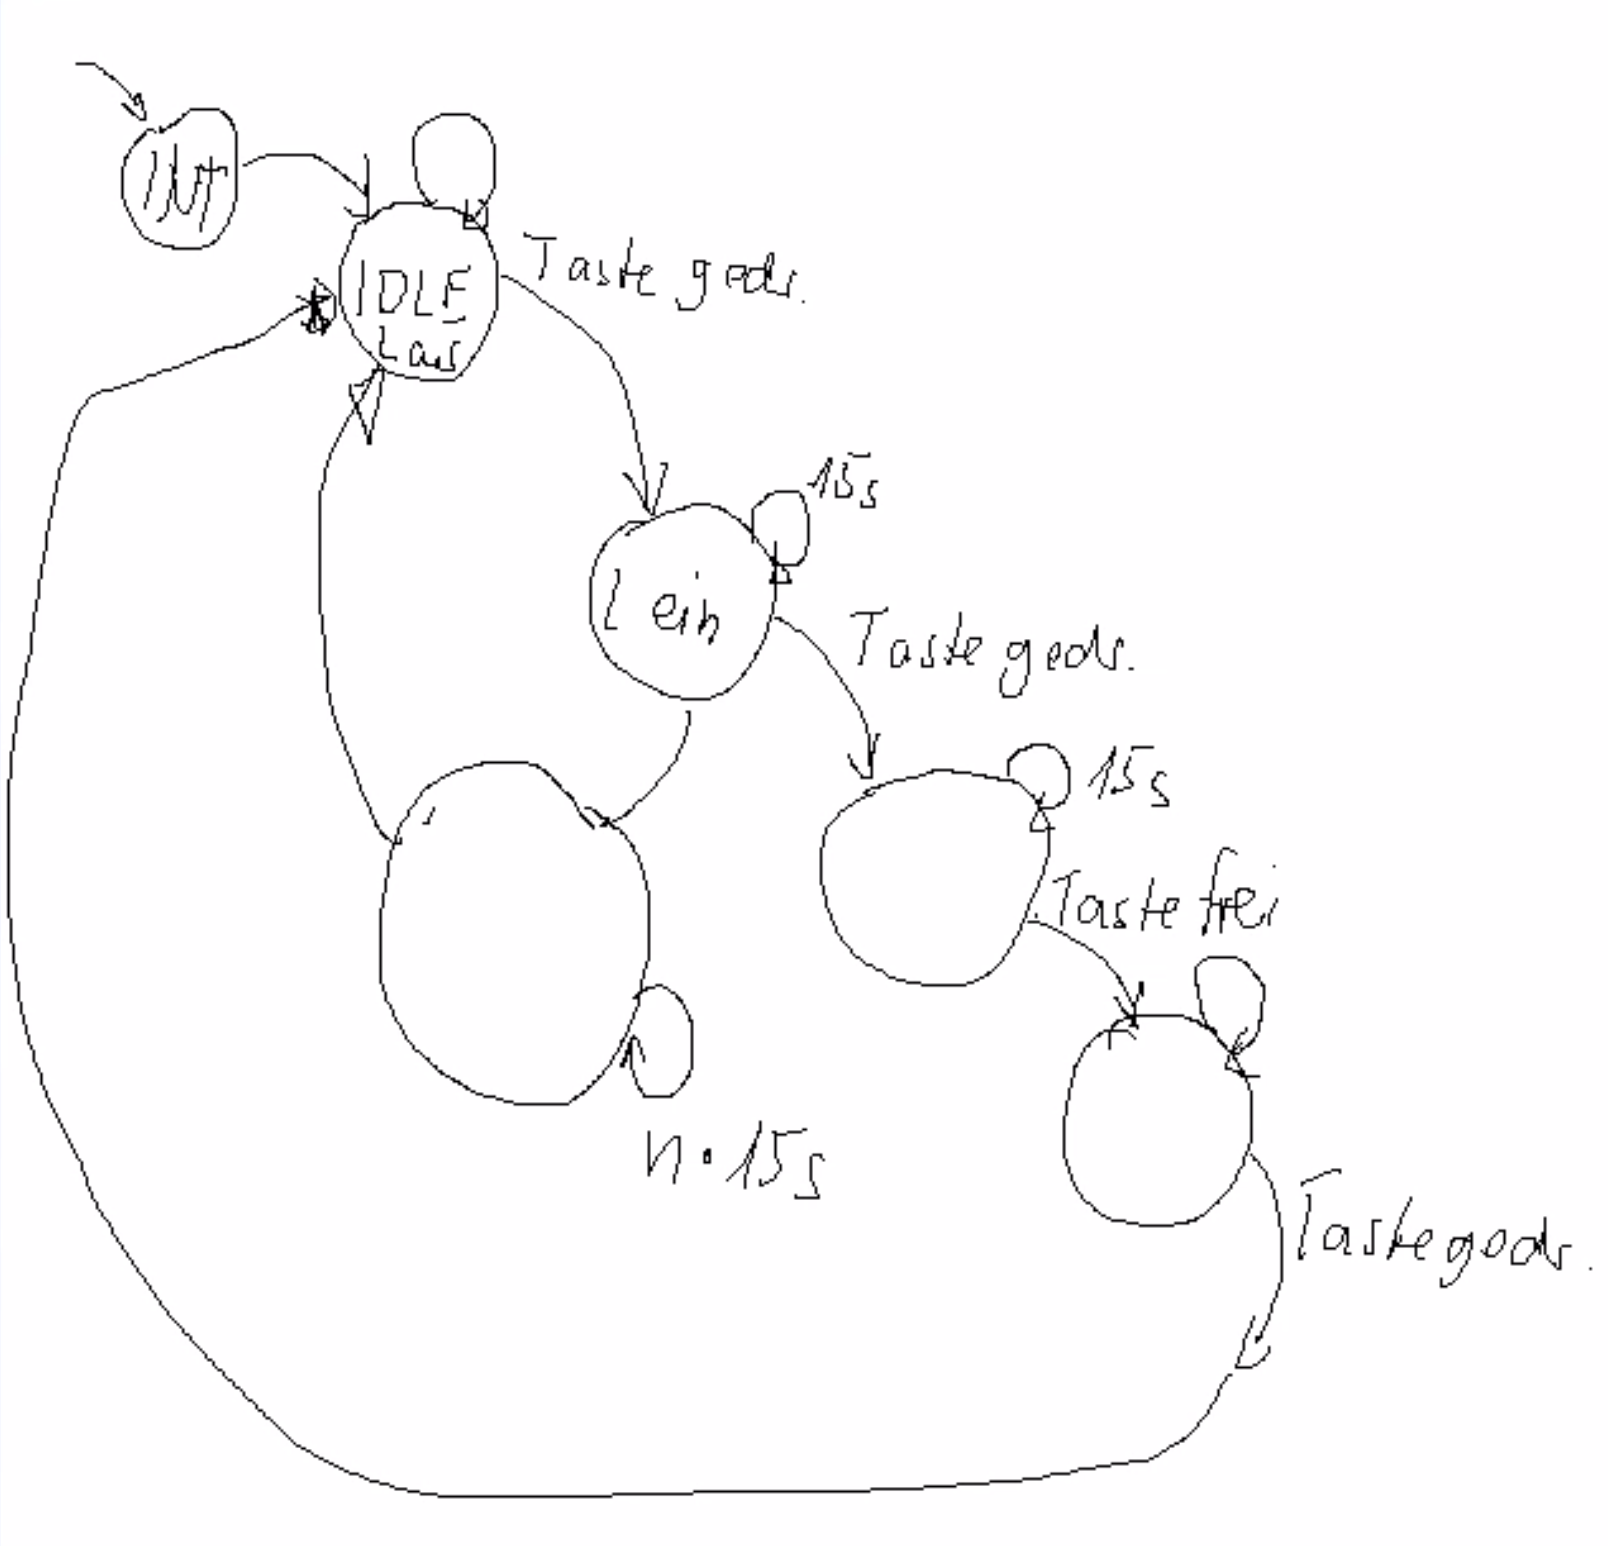 INIT
IDLE
L aus
Taste gedr.
15s
L ein
Taste gedr.
15s
Taste frei
n · 15s
Taste gedr.